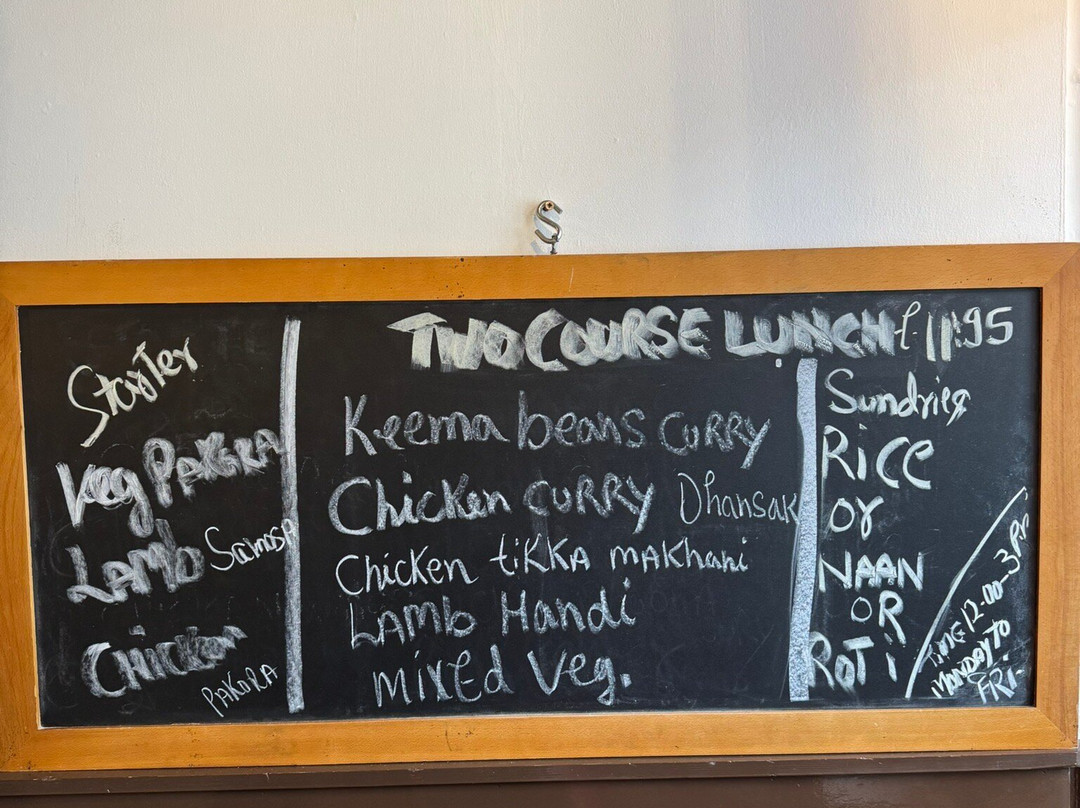 TWO COURSE LUNCH £11.95
Starter
Veg PAKORA
LAMB Samosa
CHICKEN
PAKORA
Keema beans CURRY
Chicken CURRY Dhansak
Chicken tiKKA mAKhani
LAMb Handi
mixed Veg.
Sundries
RiCe
or
NAAN
OR
RoTi
TIME 12-00-3Pm
MONDAY TO
FRI-